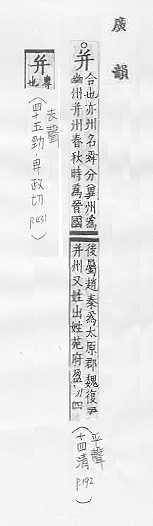 廣韻
○并
合也亦州名舜分冀州為
幽州并州春秋時為晉國
後屬趙秦為太原郡魏復置
并州又姓出姓苑府盈切四
(平聲
十四清
p.192)
并
專也
(去聲
四十五勁 畀政切
p.431)